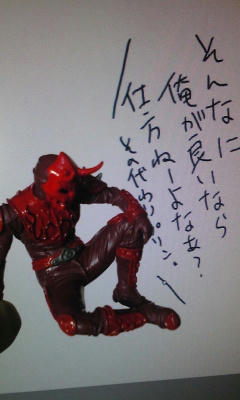 そんなに
俺が良いなら
仕方ねーよなぁ?
その代わりプリン。